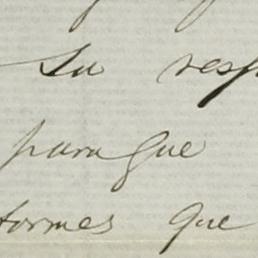 Su resp
para que
formes que